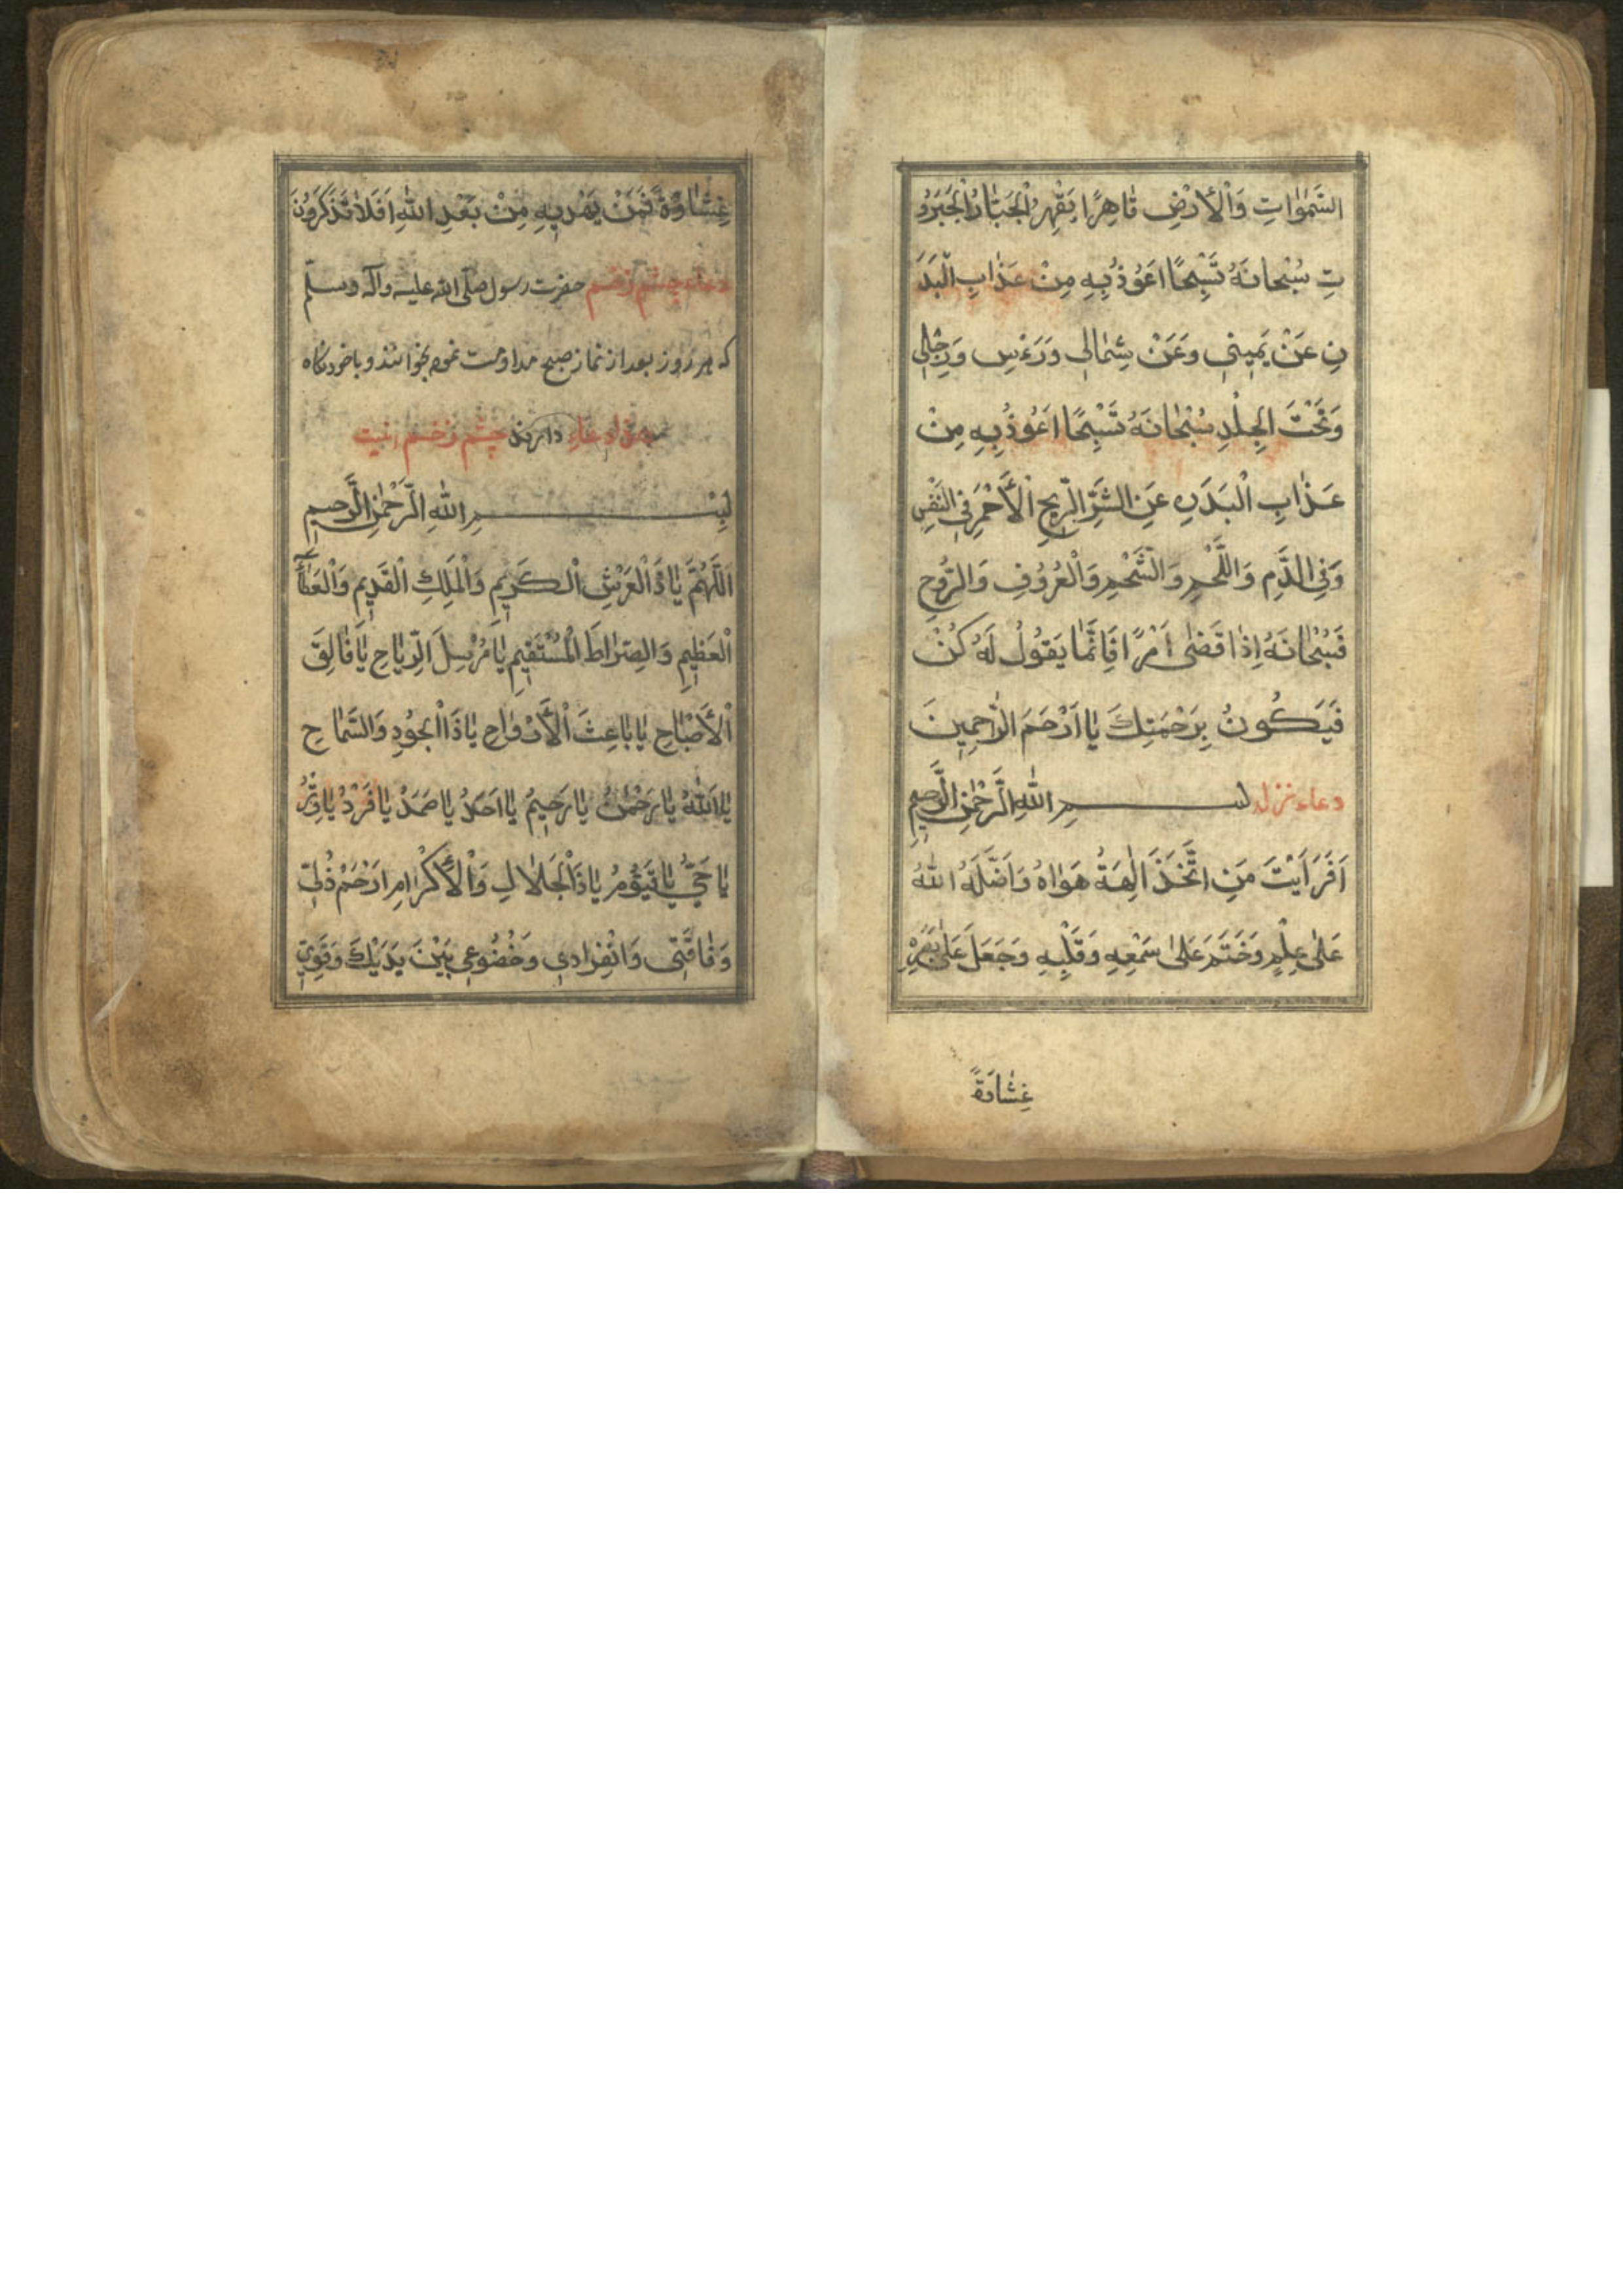 السَّمٰوَاتِ وَالْأَرْضِ قَاهِرًا يَقْهِرُ الْجَبَّارُ الْجَبَرُو
تِ سُبْحَانَهُ تَسْبِيْحًا اَعُوْذُ بِهِ مِنْ عَذَابِ الْبَدَ
نِ عَنْ يَمِيْنِي وَعَنْ شِمَالِي وَرَءْسِ وَرِجْلِي
وَتَحْتَ الْجِلْدِ سُبْحَانَهُ تَسْبِيْحًا اَعُوْذُ بِهِ مِنْ
عَذَابِ الْبَدَنِ عَنِ الشَّرِّ الرِّيحِ الْأَحْمَرِ فِي النَّفْسِ
وَفِي الدَّمِ وَاللَّحْمِ وَالشَّحْمِ وَالْعُرُوْفِ وَالرُّوْحِ
فَسُبْحَانَهُ اِذَا قَضٰى اَمْرًا فَاِنَّمَا يَقُوْلُ لَهُ كُنْ
فَيَكُونُ بِرَحْمَتِكَ يَا اَرْحَمَ الرَّاحِمِينَ
دعاء نزله بسم اللهِ الرَّحْمٰنِ الرَّحِيمِ
اَفَرَاَيْتَ مَنِ اتَّخَذَ اِلٰهَهُ هَوَاهُ وَاَضَلَّهُ اللهُ
عَلٰى عِلْمٍ وَخَتَمَ عَلٰى سَمْعِهِ وَقَلْبِهِ وَجَعَلَ عَلٰى بَصَرِهِ
غِشَاوَةً
غِشَاوَةً فَمَنْ يَهْدِيْهِ مِنْ بَعْدِ اللهِ اَفَلَا تَذَكَّرُوْنَ
دعاء چشم زخم حضرت رسول صلّى الله عليه وآله وسلّم
كه هر روز بعد از نماز صبح مداومت نموده بخوانند و با خود نگاه
دارند چشم زخم اينست
بِسْمِ اللهِ الرَّحْمٰنِ الرَّحِيمِ
اَللّٰهُمَّ يَا ذَا الْعَرْشِ الْكَرِيْمِ وَالْمَلِكِ الْقَدِيْمِ وَالْعَطَآءِ
الْعَظِيْمِ وَالصِّرَاطِ الْمُسْتَقِيْمِ يَا مُرْسِلَ الرِّيَاحِ يَا فَالِقَ
الْأَصْبَاحِ يَا بَاعِثَ الْأَرْوَاحِ يَا ذَا الْجُوْدِ وَالسَّمَاحِ
يَا اَللهُ يَا رَحْمٰنُ يَا رَحِيْمُ يَا اَحَدُ يَا صَمَدُ يَا فَرْدُ يَا وِتْرُ
يَا حَيُّ يَا قَيُّوْمُ يَا ذَا الْجَلَالِ وَالْأَكْرَامِ ارْحَمْ ذُلِّي
وَفَاقَتِي وَانْفِرَادِي وَخُضُوْعِي بَيْنَ يَدَيْكَ وَقَوِّي